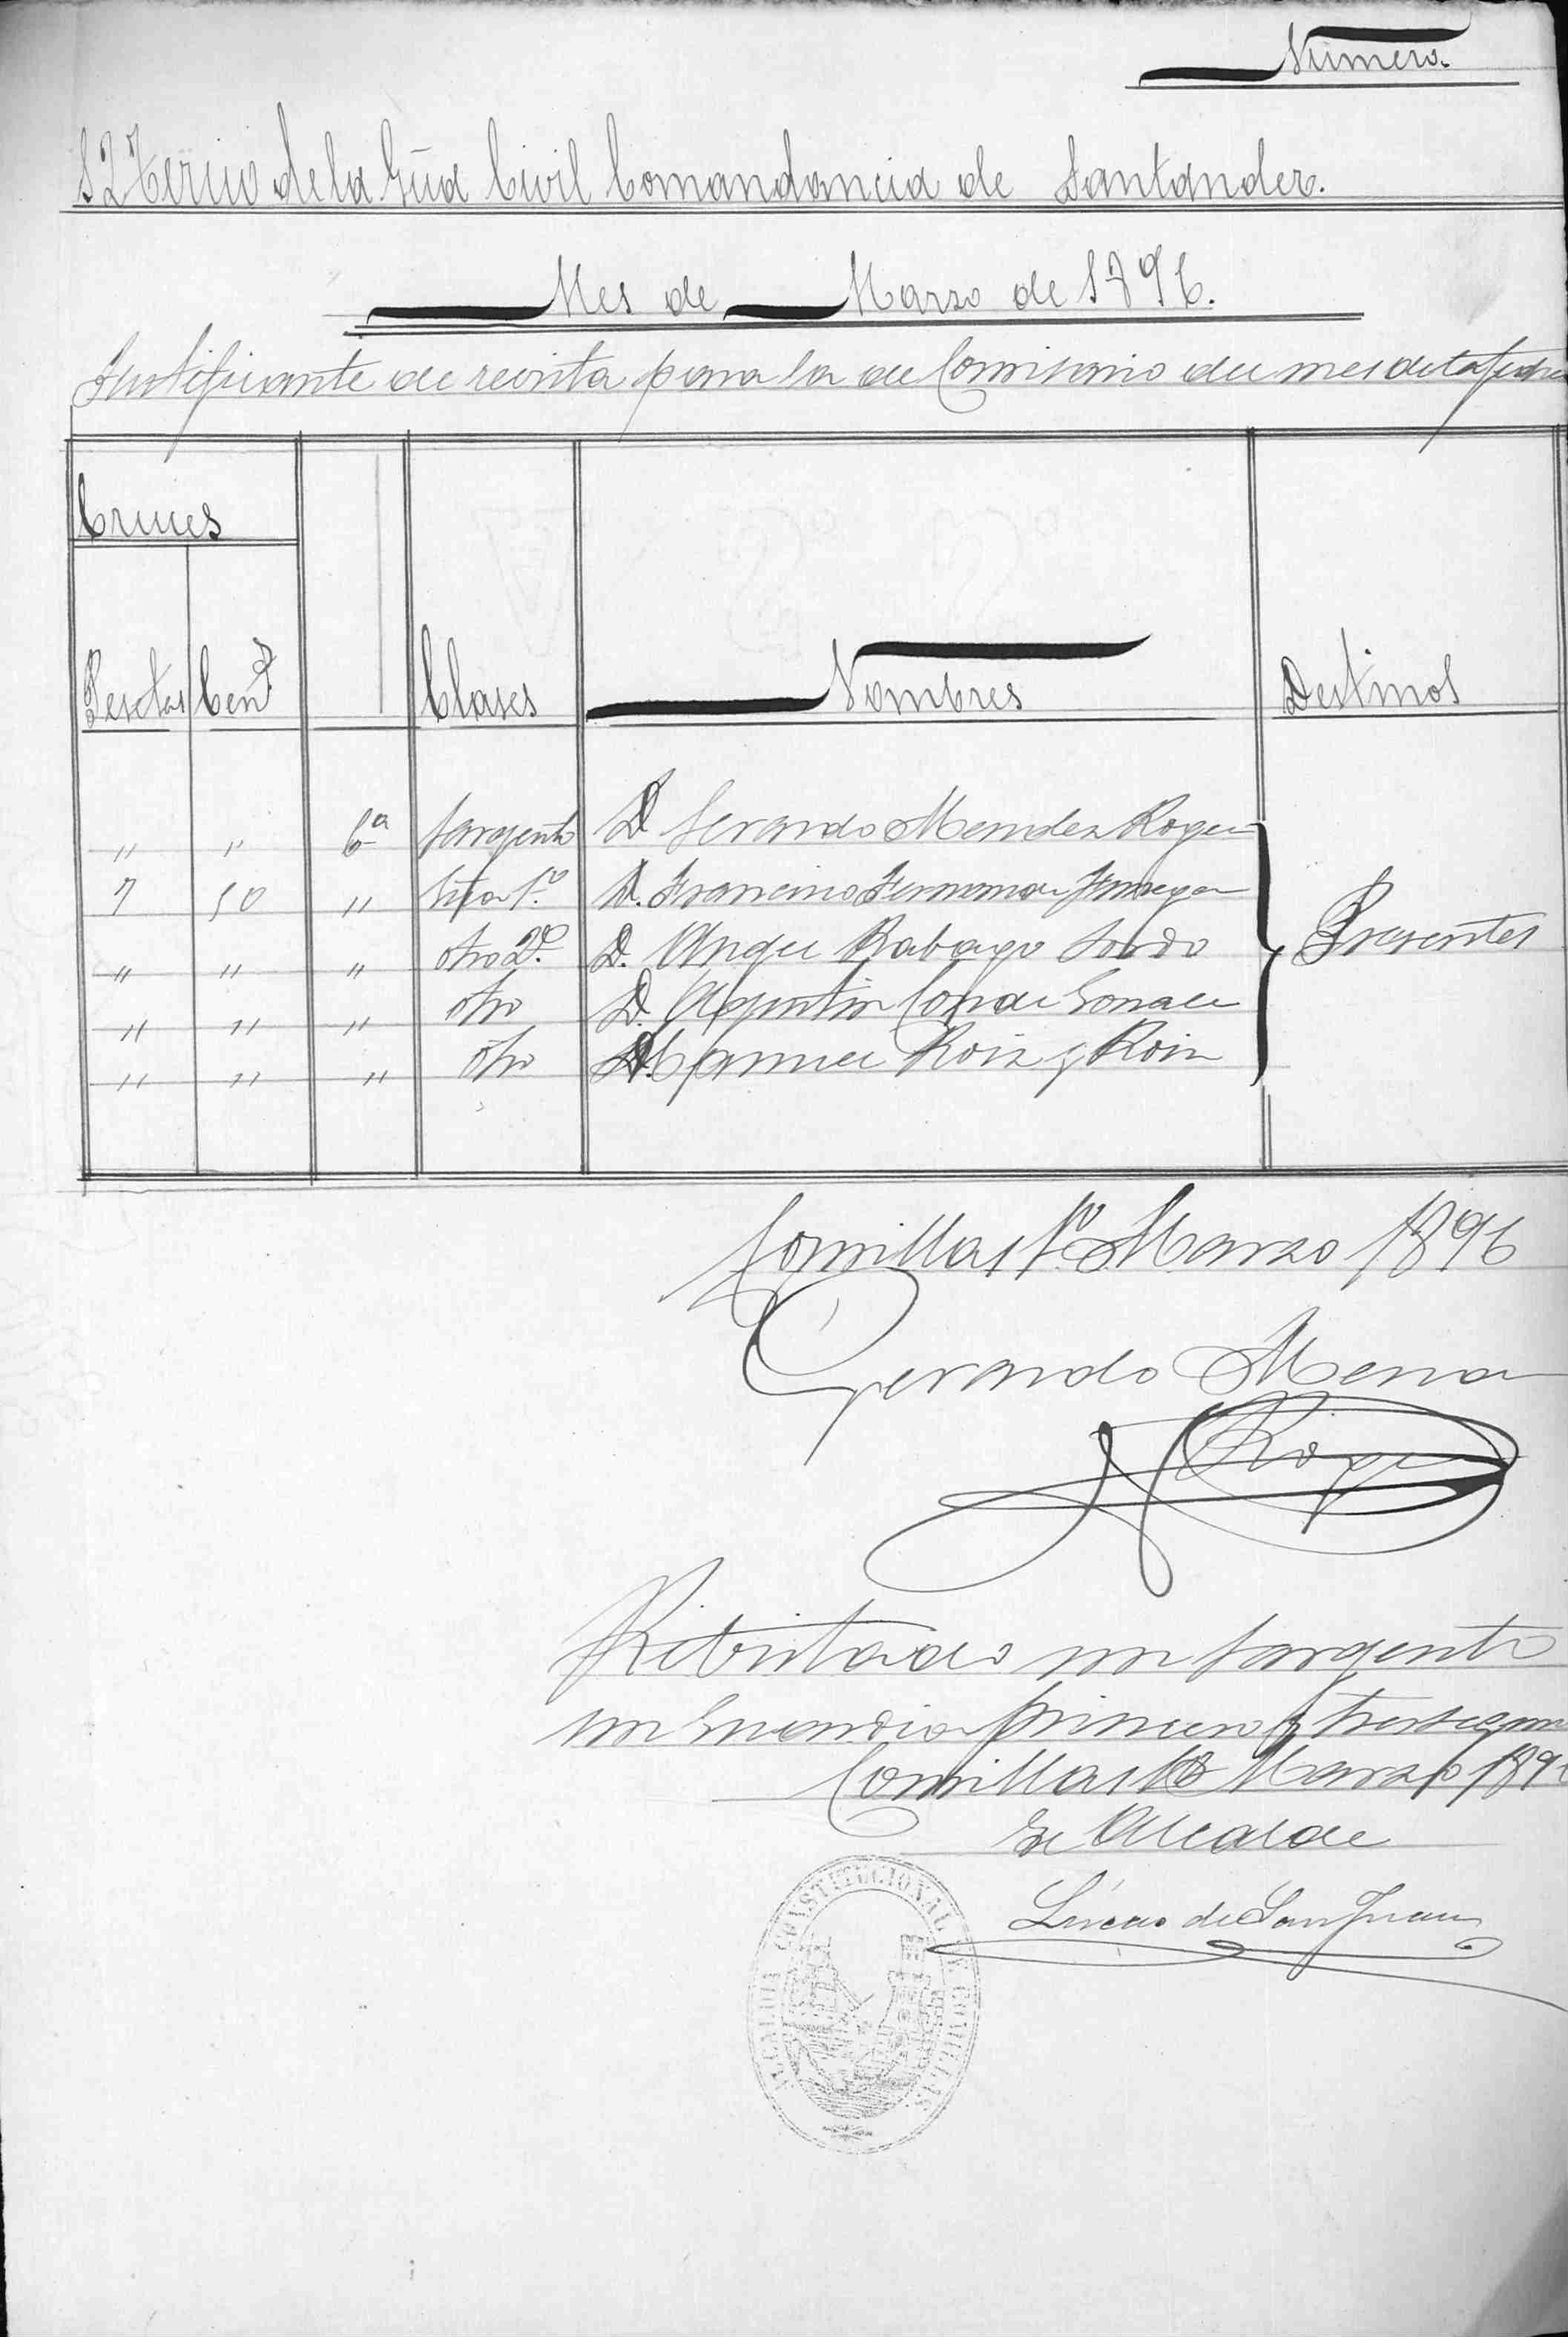 Número.
12 Tercio de la Gua Civil Comandancia de Santander.
Mes de Marzo de 1896.
Justificante de revista para la de Comisario del mes de la fecha
Cruces
Pesetas Cents Clases Nombres Destinos
" " 6ª Sargento D Gerardo Mendez Roger
7 50 " Gua 1º D. Francisco
" " " otro 2º D. Angel Rabago Sordo
" " " otro D. Agustin Conde Gonzalez
" " " otro D. Manuel Roiz y Roiz
Presentes
Comillas 1º Marzo 1896
Gerardo Mendez
Roger
Revistado un Sargento
un Guardia primero y tres segun
Comillas 1º Marzo 189
El Alcalde
Lúcas de San Juan
ALCALDIA CONSTITUCIONAL DE COMILLAS